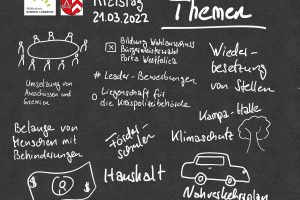 Kreistag
21.03.2022
Themen
Umsetzung von
Ausschüssen und
Gremien
x Bildung Wahlausschuss
Bürgerentscheid
Porta Westfalica
# Leader-Bewerbungen
o Liegenschaft für
die Kreispolizeibehörde
Wieder-
besetzung
von
Stellen
Belange von
Menschen mit
Behinderungen
Förder
schulen
Haushalt
Kampa-Halle
Klimaschutz
Nahverkehrsplan